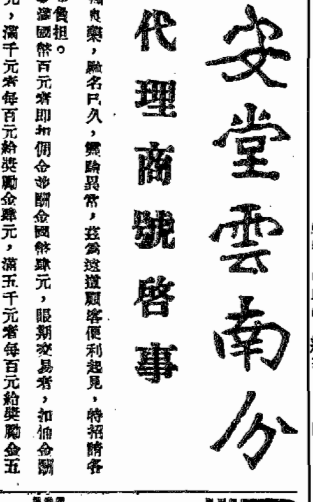 安堂雲南分
代理商號啓事
良藥，馳名已久，靈驗異常，茲為遠道顧客便利起見，特招請各
負担。
滿國幣百元者即扣佣金診酬金國幣肆元，眼期交易者，扣佣金酬
元，滿千元者每百元給獎勵金肆元，滿五千元者每百元給獎勵金五